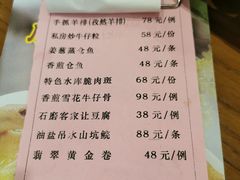 手抓羊排(孜然羊排) 78元/例
私房炒牛仔粒 58元/份
姜葱蒸仓鱼 48元/条
香煎仓鱼 48元/条
特色水库脆肉斑 68元/份
香煎雪花牛仔骨 98元/例
石磨客家让豆腐 38元/例
油盐吊水山坑鲩 88元/条
翡翠黄金卷 48元/例